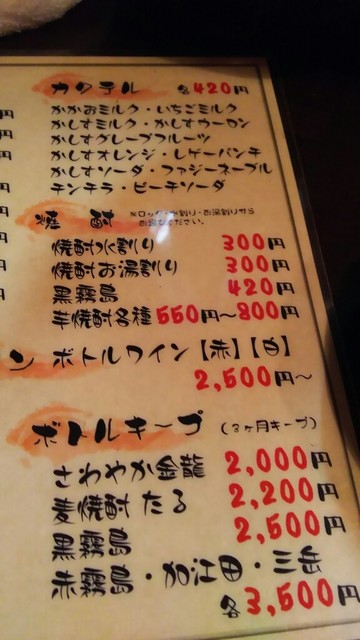 カクテル 各420円
かかおミルク・いちごミルク
かしすミルク・かしすウーロン
かしすグレープフルーツ
かしすオレンジ・レゲーパンチ
かしすソーダ・ファジーネーブル
チンチラ・ピーチソーダ
焼酎
焼酎水割り 300円
焼酎お湯割り 300円
黒霧島 420円
芋焼酎各種 550円〜800円
ン ボトルワイン【赤】【白】
2,500円〜
ボトルキープ (3ヶ月キープ)
さわやか金龍 2,000円
麦焼酎 たる 2,200円
黒霧島 2,500円
赤霧島・加江田・三岳
各3,500円